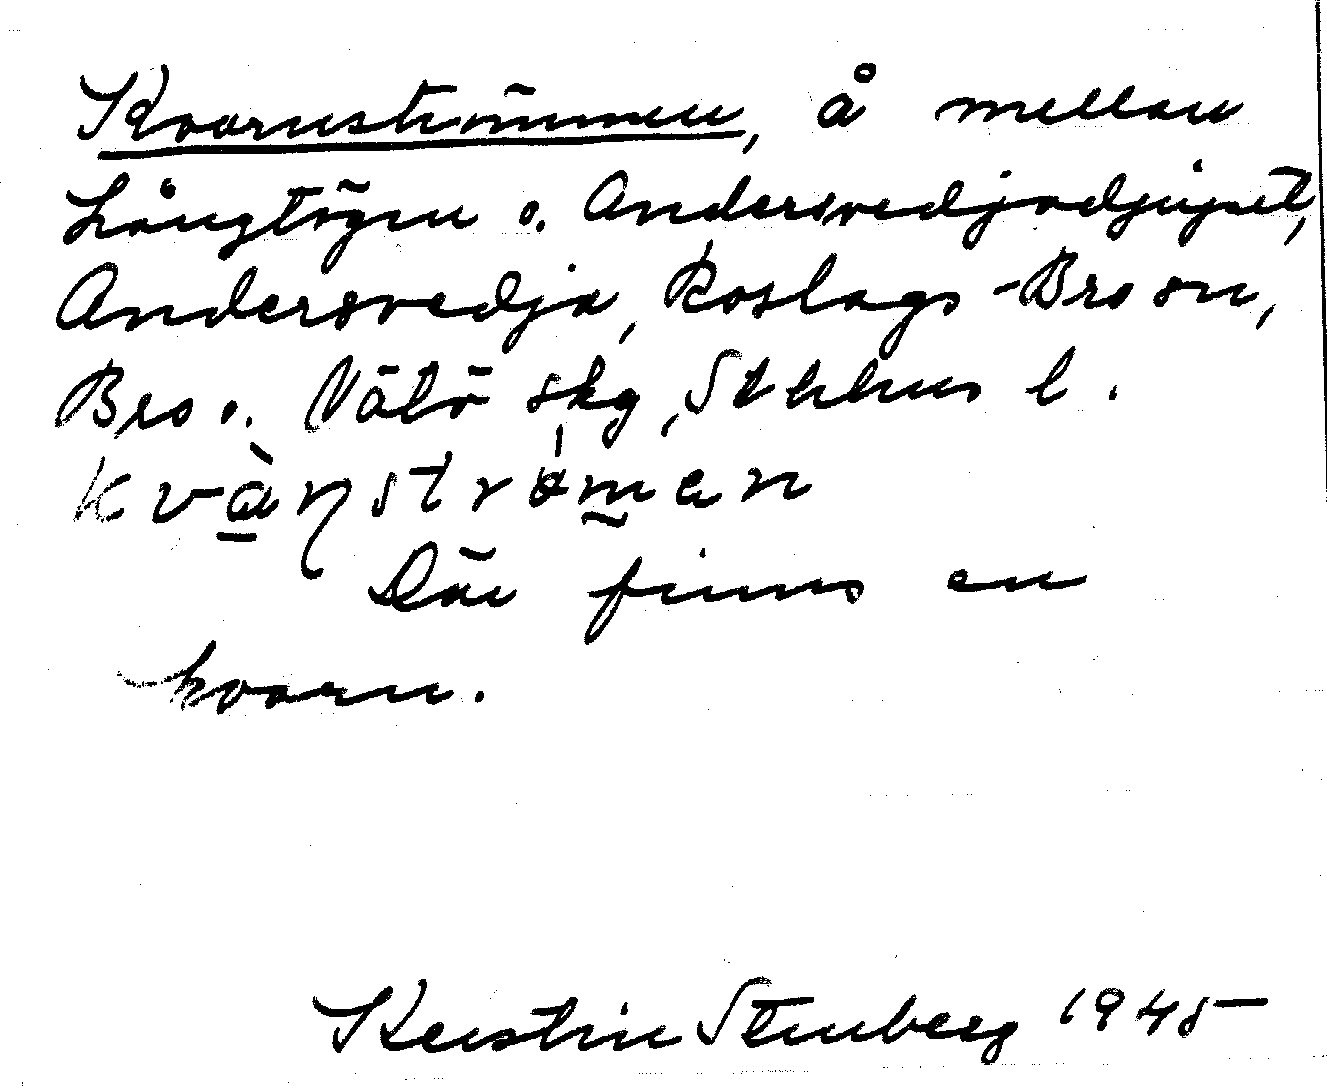 Kvarnströmmen, å mellan
Långtögen o. Andersvedjadjupet,
Andersvedja, Roslags-Bro sn,
Bro o. Vätö skg, Sthlms l.
kvàņströ̀man
Där finns en
kvarn.
Kerstin Stenberg 1945